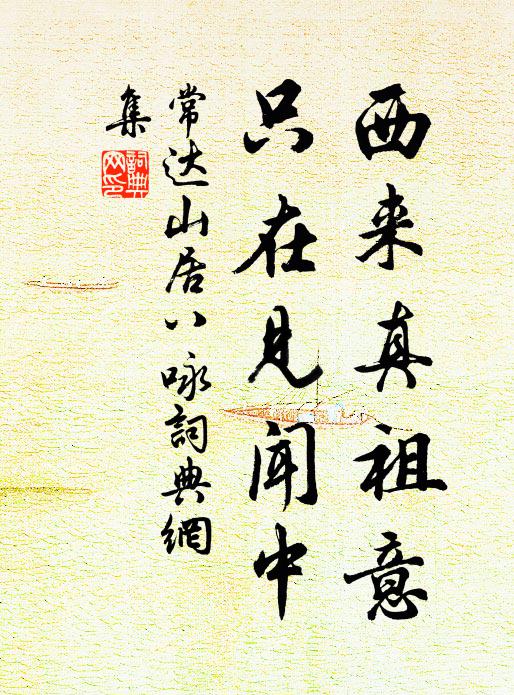 西来真祖意
只在见闻中
常达山居八咏詞典網
集
詞典
网印